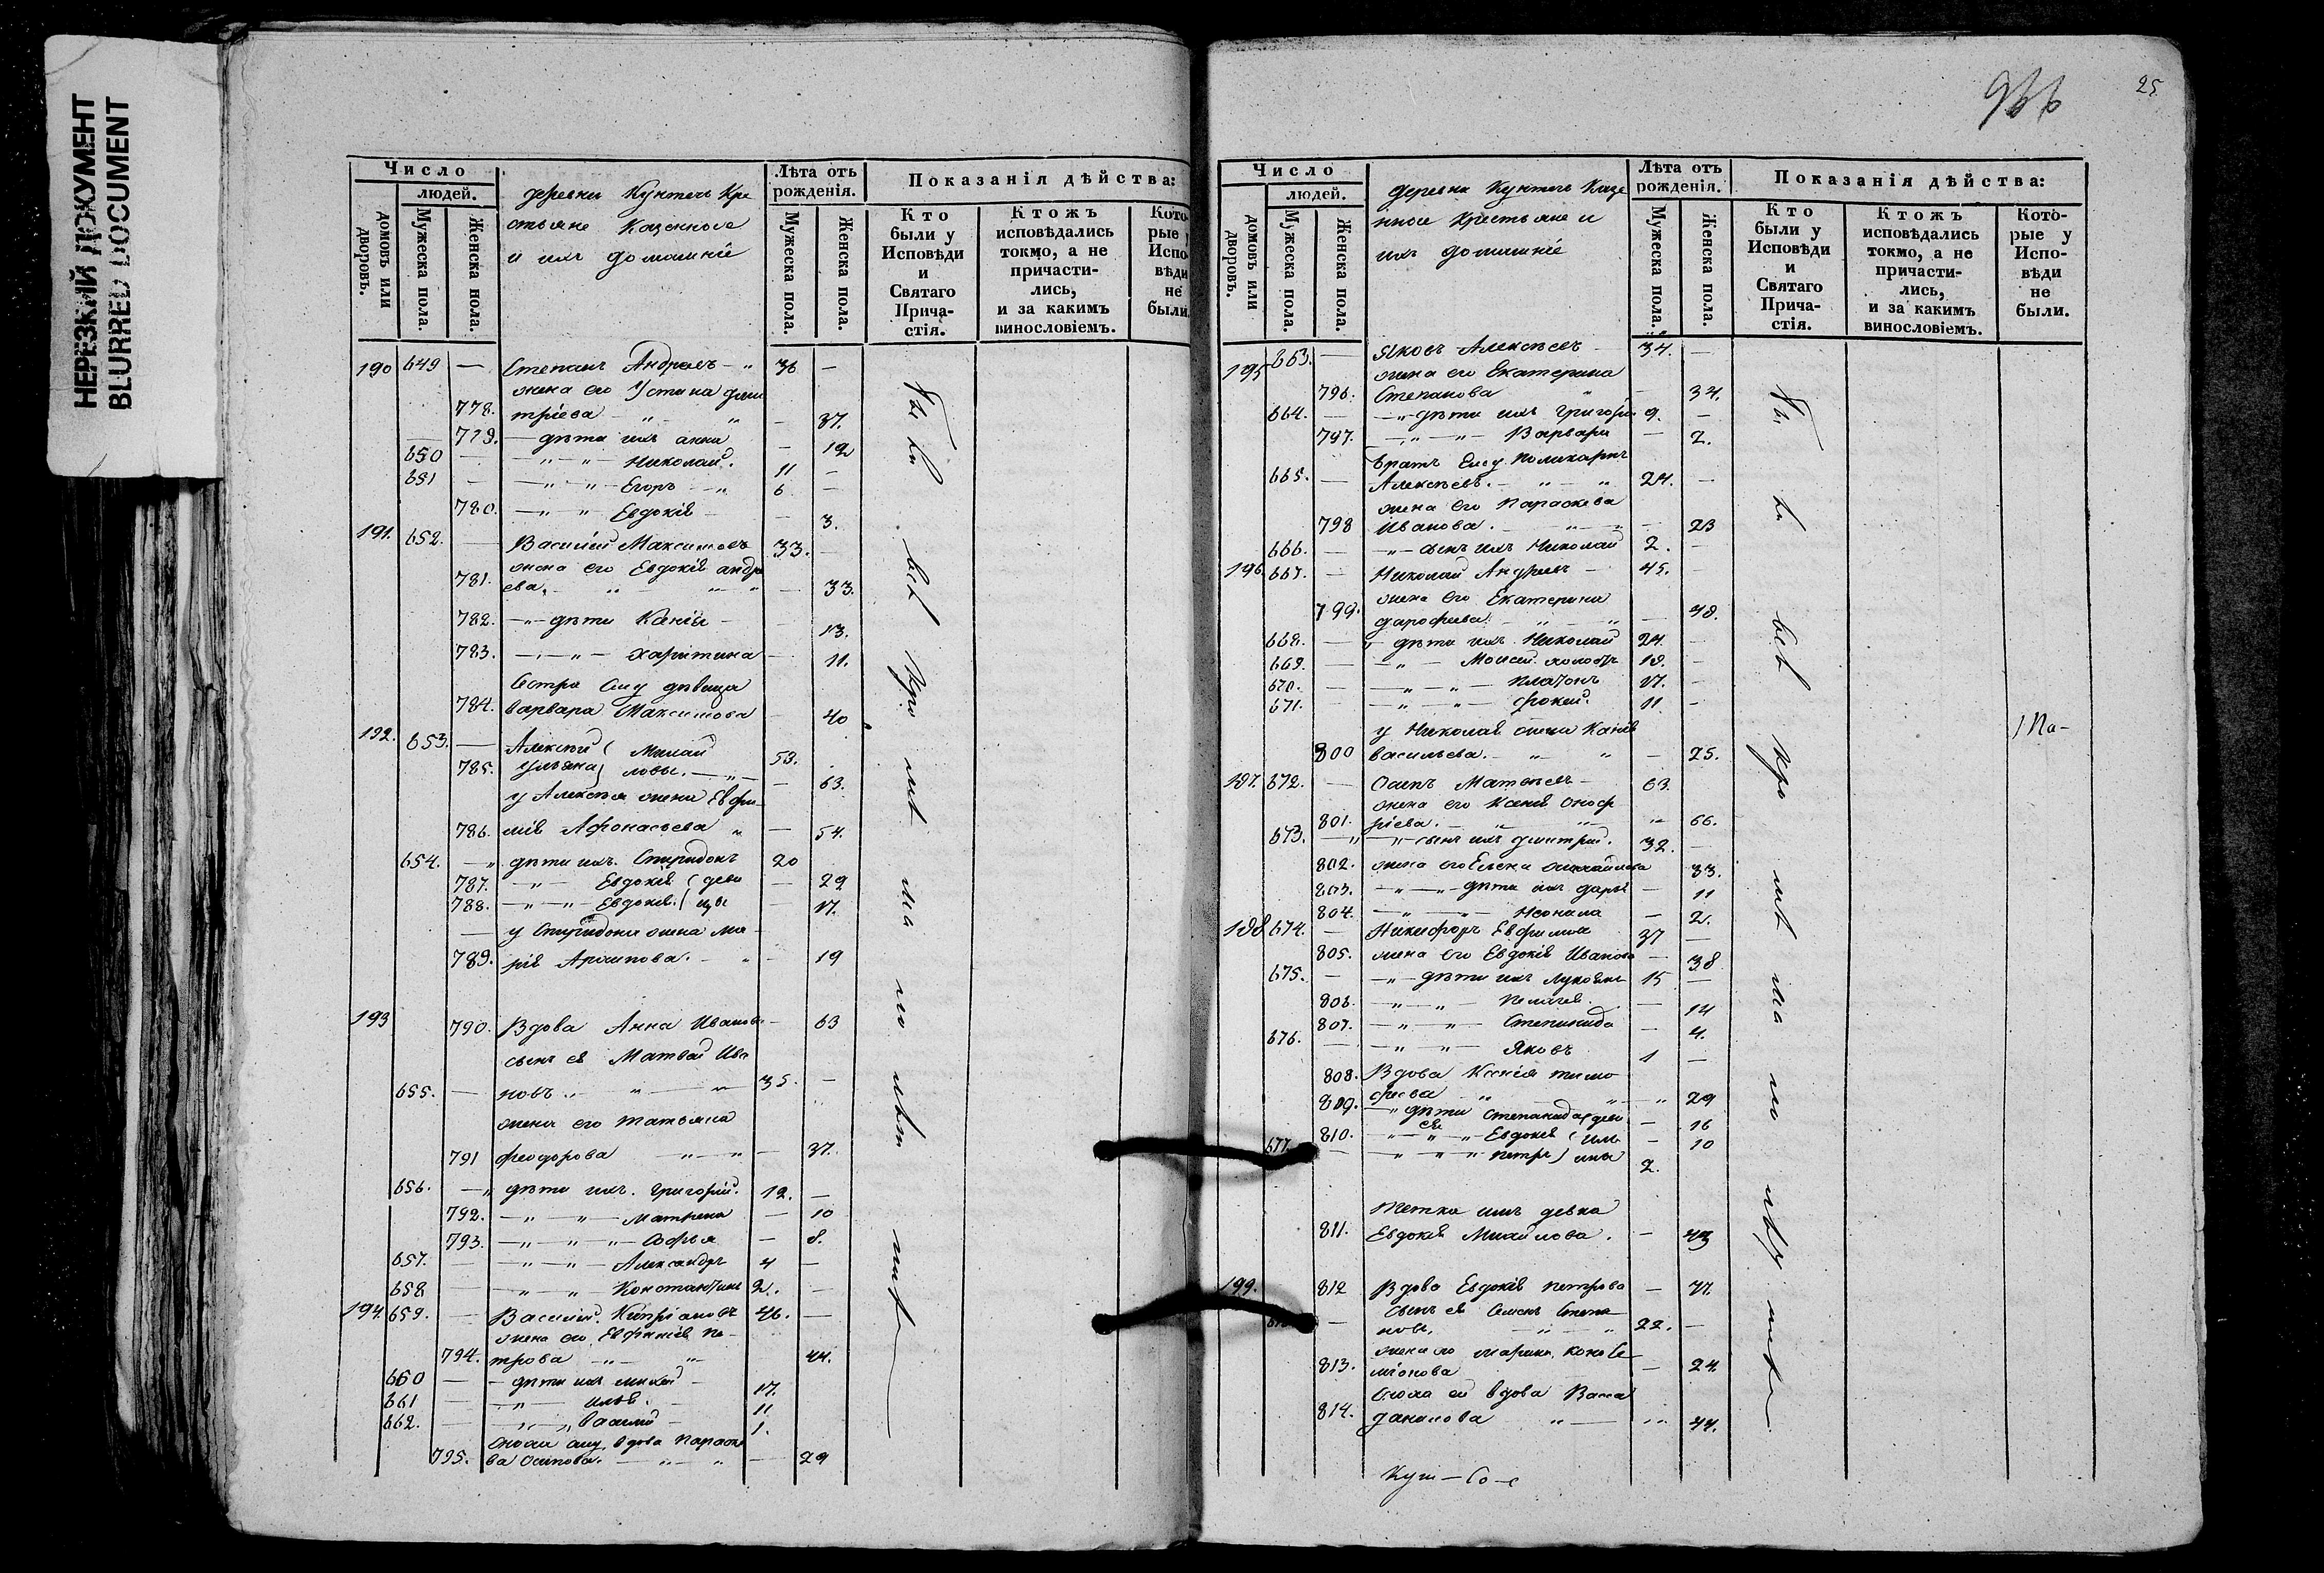 НЕРЕЗКИЙ ДОКУМЕНТ
BLURRED DOCUMENT
Число
людей.
домовъ или дворовъ.
Мужеска пола.
Женска пола.
деревни Кунтечь Кре
стьяне Казенные
и ихъ домашнiе
Лѣта отъ рожденiя.
Мужеска пола.
Женска пола.
Показанiя дѣйства:
Кто были у Исповѣди и Святаго Прича-стiя.
Ктожъ исповѣдались токмо, а не причасти-лись, и за какимъ винословiемъ.
Кото-рые у Испо-вѣди не были.
190 649 — Степанъ Андреевъ — " 36 —
жена его Устина Дми
778. трiева — " " — 37.
779. — дѣти ихъ Анна — 12
650 — — " — " — Николай. 11 —
651 — — " — " — Егоръ — " 6 —
780. — " — " Евдокiя — — 3.
191. 652. — Василiй Максимовъ 33. —
жена его Евдокiя Андре
781. ева. — " — " " — 33.
782. — " — дѣти Ксенiя — — 13.
783. — " — " — Харитина — 11.
Сестра ему дѣвица
784. Варвара Максимова — 40
192. 653. — Алексѣй Михай 53.
785. Ульяна ловы. — " — — 63.
у Алексѣя жена Евфи
786. мiя Афонасьева " — 54.
654. — " дѣти ихъ. Спиридонъ 20
787. — " — Евдокiя деви — 29
788. — " — " — Евдокiя. цы — 17.
— у Спиридона жена Ма
789. рiя Архипова. — " — 19
193 790. Вдова Анна Иванова — 63
сынъ ея Матвей Ива
655. — новъ. — " — " 35. —
жена его Татьяна
791 Феодорова — " — " — 37.
656. — " дѣти ихъ. Григорiй. 12. —
792. — " — " — Матрена — 10
793. — " — " — " — Софья — 8.
657. — — " — " — Александръ 4 —
658 — — " — " — Константинъ 2. —
194. 659. — Василiй. Кипрiановъ 46. —
жена его Евфимiя Пе
794. трова — " — " 44.
660 — — дѣти ихъ Михей — 17.
661 — — " — Илья. — 11
662. — — " — " Василiй — 1.
Сноха ему вдова Параске
795. ва Осипова. — " — " — 29
966
25
Число
людей.
домовъ или дворовъ.
Мужеска пола.
Женска пола.
деревни Кунтечь Казе
нные Крестьяне и
ихъ домашнiе
Лѣта отъ рожденiя.
Мужеска пола.
Женска пола.
Показанiя дѣйства:
Кто были у Исповѣди и Святаго Прича-стiя.
Ктожъ исповѣдались токмо, а не причасти-лись, и за какимъ винословiемъ.
Кото-рые у Испо-вѣди не были.
195 663. — Яковъ Алексѣевъ — 34. —
жена его Екатерина
796. Степанова " — 34.
664. — — " — дѣти ихъ Григорiй 9. —
797. — " — " — Варвара — 2.
Братъ ему Поликарпъ
665. — Алексѣевъ. — " — " 24. —
жена его Параскева
798 Иванова. — " — — 23
666. — — " — сынъ ихъ Николай 2. —
196. 667. — Николай Андреевъ — 45. —
жена его Екатерина
799. Дарофеева — " — " — 48.
668. — " дѣти ихъ Николай 24. —
669. — — " — Моисей 18. —
670. — — " — " — Платонъ 17. —
671. — — " — " — Фокей. 11 —
у Николая жена Ксенiя
800 Васильева. — " — " — 25.
197. 672. — Осипъ Матвѣевъ — 63.
жена его Ксенiя Оноф
801. рiева. — " — " " 66.
673. — " — " — сынъ ихъ Дмитрiй. 32. —
802. жена его Елена Михайлова 33.
803. — " — " — дѣти ихъ Дарья — 11
804. — " — " — Неонила — 2.
198 674. — Никифоръ Евфимов 37 —
805. жена его Евдокiя Иванова — 38
675. — — " — дѣти ихъ Лукоянъ 15 —
806. — " — " — Пелагея. — 14
807. — " — " — Степанида — 4.
676. — — " — " — Яковъ 1 —
808. Вдова Ксенiя Тимо
809. феева " — " " 29
— " дѣти Степанида деви — 16
810. — " — ея " — " — Евдокiя — 10
677. — — " — " — " Петръ 2.
Тетка имъ девка
811. Евдокiя Михайлова. — 43
199. 812 Вдова Евдокiя Петрова — 77.
Сынъ ея Семенъ Степа
— новъ. — " — " 22. —
жена его Марина
813. — 24.
Сноха ей вдова Васса
814. Данилова " — " 44.